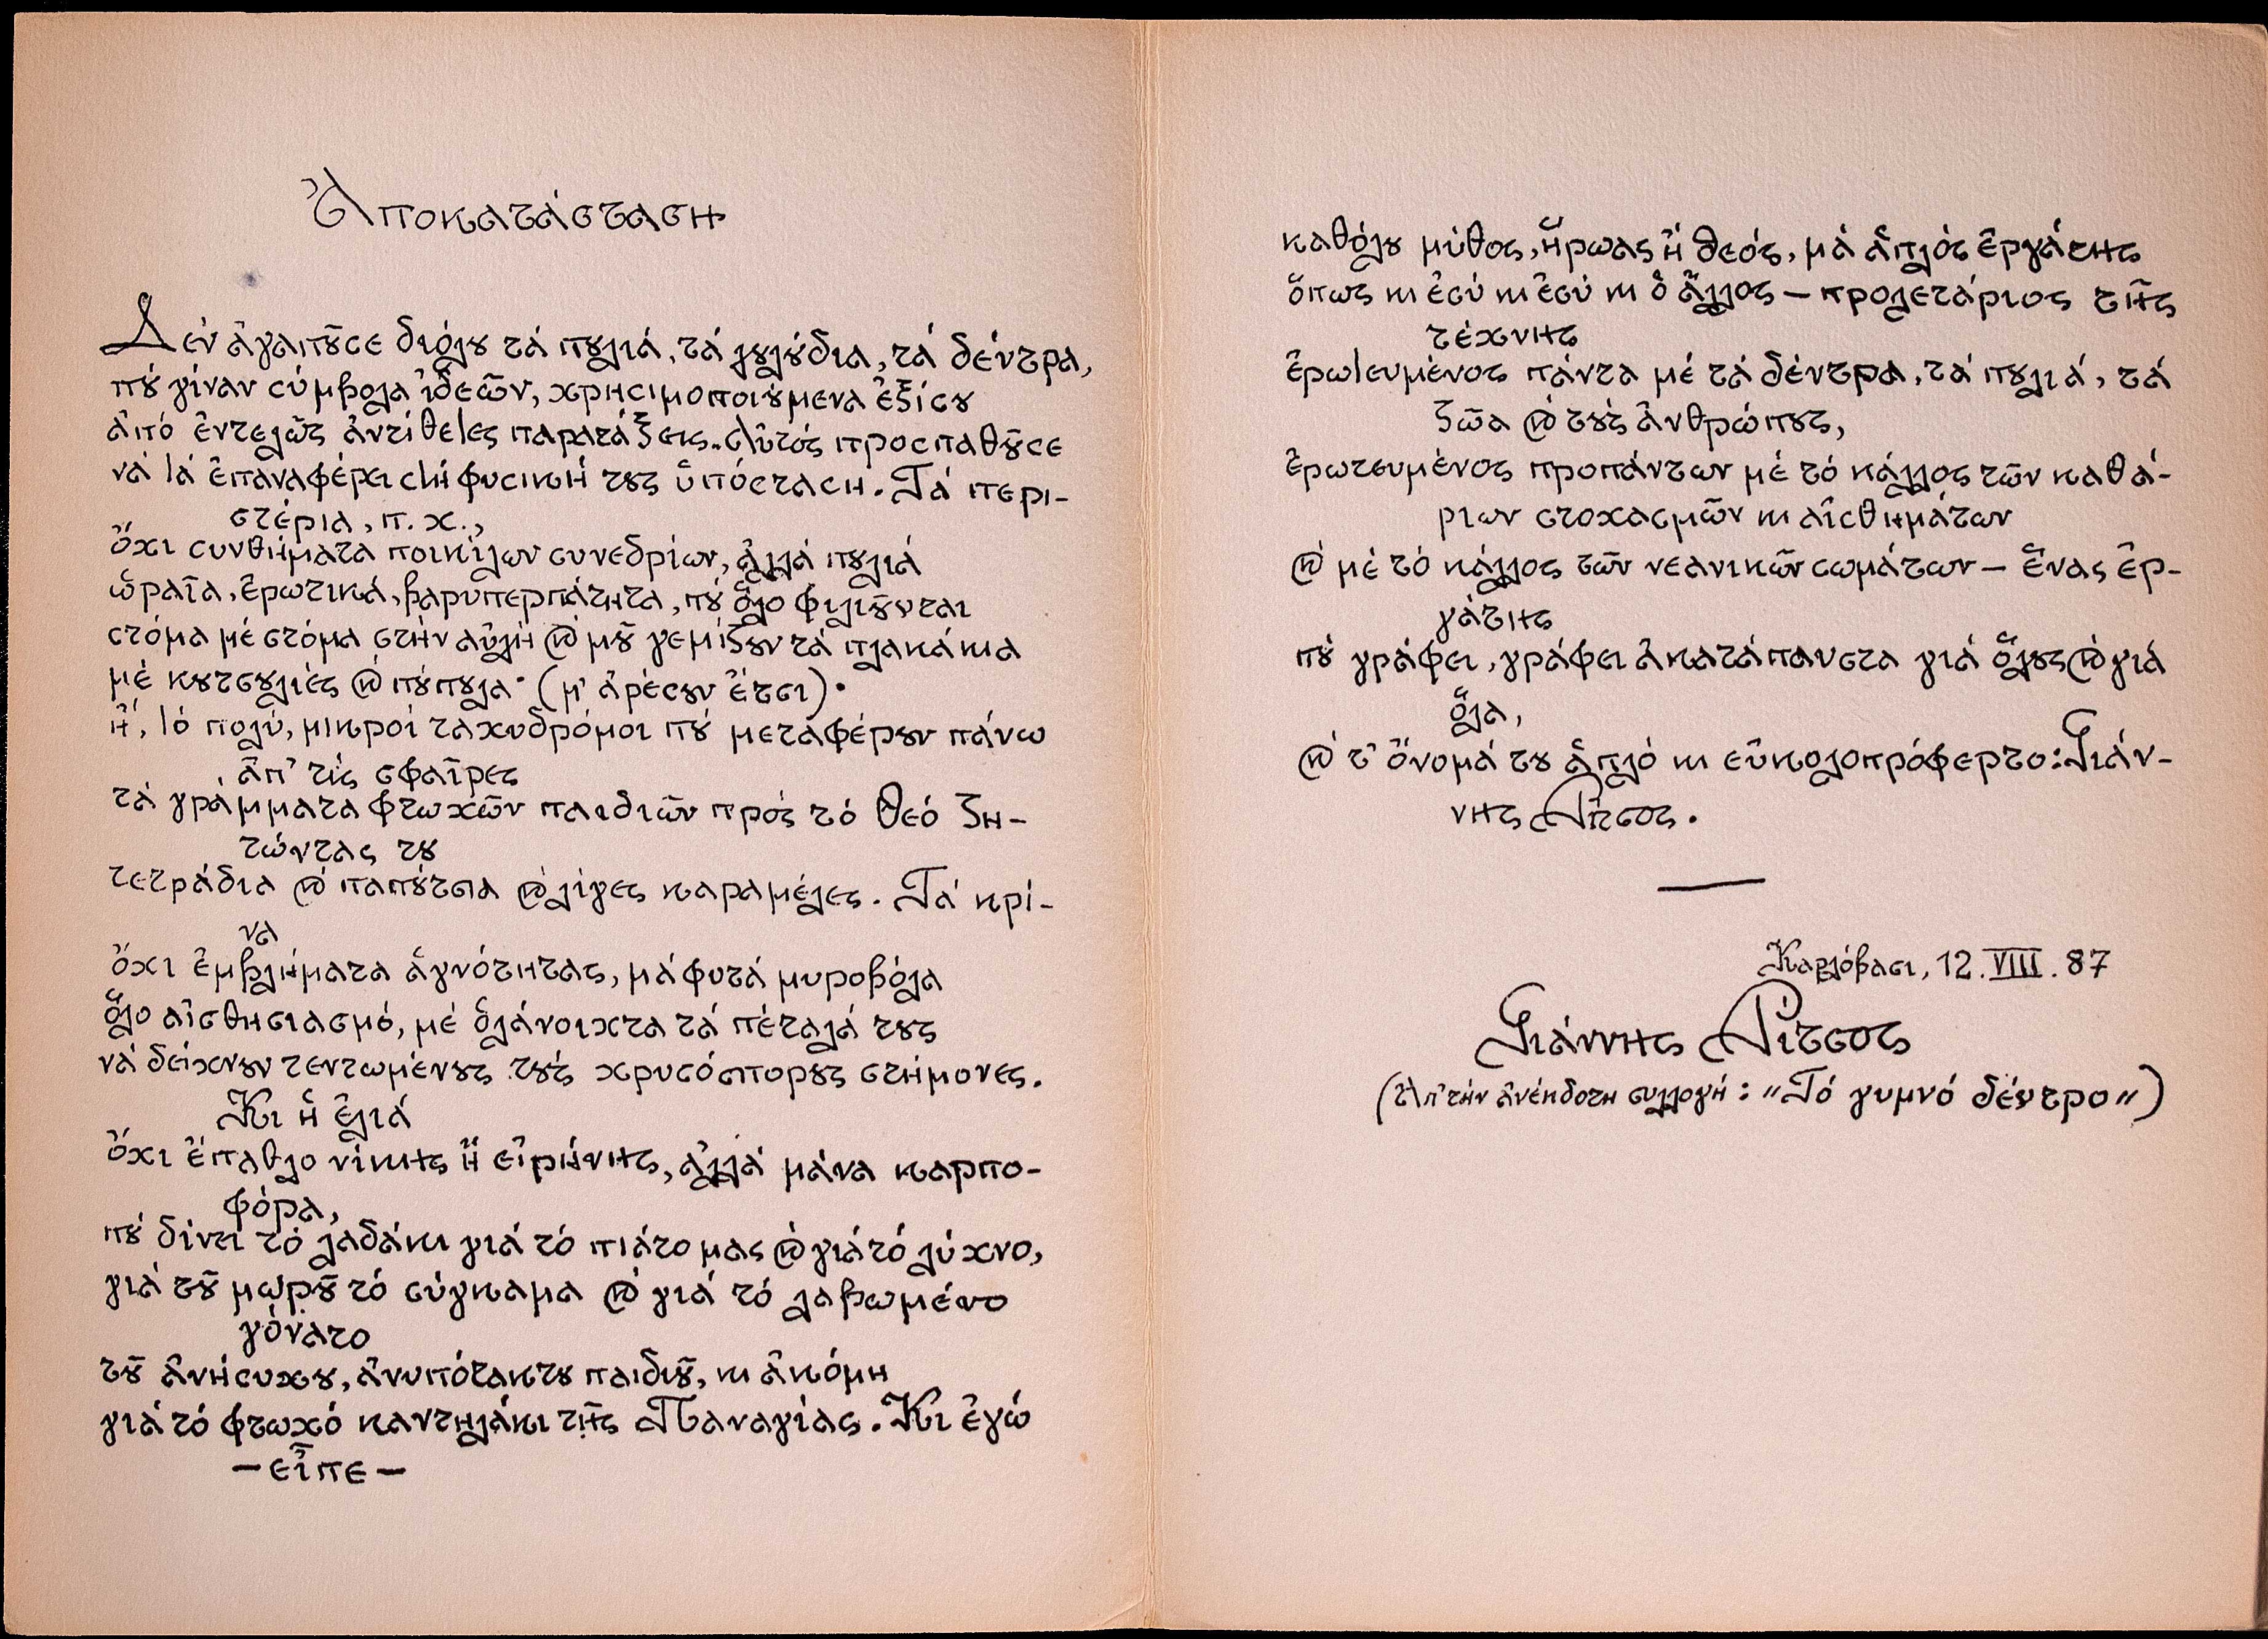 Ἀποκατάσταση
Δέν ἀγαποῦσε διόλου τά πουλιά, τά λουλούδια, τά δέντρα,
πού γίναν σύμβολα ἰδεῶν, χρησιμοποιούμενα ἐξίσου
ἀπό ἐντελῶς ἀντίθετες παρατάξεις. Αὐτός προσπαθοῦσε
νά τά ἐπαναφέρει στή φυσική τους ὑπόσταση. Τά περι-
στέρια, π.χ.,
ὄχι συνθήματα ποικίλων συνεδρίων, ἀλλά πουλιά
ὡραῖα, ἐρωτικά, βαρυπερπάτητα, πού ὅλο φιλιοῦνται
στόμα μέ στόμα στήν αὐλή καί μοῦ γεμίζουν τά πλακάκια
μέ κουτσουλιές καί πούπουλα· (μ' ἀρέσουν ἔτσι)·
ἤ, τό πολύ, μικροί ταχυδρόμοι πού μεταφέρουν πάνω
ἀπ' τίς σφαῖρες
τά γράμματα φτωχῶν παιδιῶν πρός τό Θεό ζη-
τώντας του
τετράδια καί παπούτσια καί λίγες καραμέλες. Τά κρί-
να
ὄχι ἐμβλήματα ἁγνότητας, μά φυτά μυροβόλα
ὅλο αἰσθησιασμό, μέ ὁλάνοιχτα τά πέταλά τους
νά δείχνουν τεντωμένους τούς χρυσόσπορους στήμονες.
Κι ἡ ἐλιά
ὄχι ἔπαθλο νίκης ἤ εἰρήνης, ἀλλά μάνα καρπο-
φόρα,
πού δίνει τό λαδάκι γιά τό πιάτο μας καί γιά τό λύχνο,
γιά τοῦ μωροῦ τό σύγκαμα καί γιά τό λαβωμένο
γόνατο
τοῦ ἀνήσυχου, ἀνυπότακτου παιδιοῦ, κι ἀκόμη
γιά τό φτωχό καντηλάκι τῆς Παναγίας. Κι ἐγώ
—εἶπε—
καθόλου μύθος, ἥρωας ἤ θεός, μά ἁπλός ἐργάτης
ὅπως κι ἐσύ κι ἐσύ κι ὁ ἄλλος — προλετάριος τῆς
τέχνης
ἐρωτευμένος πάντα μέ τά δέντρα, τά πουλιά, τά
ζῶα καί τούς ἀνθρώπους,
ἐρωτευμένος προπάντων μέ τό κάλλος τῶν καθά-
ριων στοχασμῶν κι αἰσθημάτων
καί μέ τό κάλλος τῶν νεανικῶν σωμάτων — ἕνας ἐρ-
γάτης
πού γράφει, γράφει ἀκατάπαυστα γιά ὅλους καί γιά
ὅλα,
καί τ' ὄνομά του ἁπλό κι εὐκολοπρόφερτο: Γιάν-
νης Ρίτσος.
Καρλόβασι, 12.VIII.87
Γιάννης Ρίτσος
(Ἀπ' τήν ἀνέκδοτη συλλογή: "Τό γυμνό δέντρο")